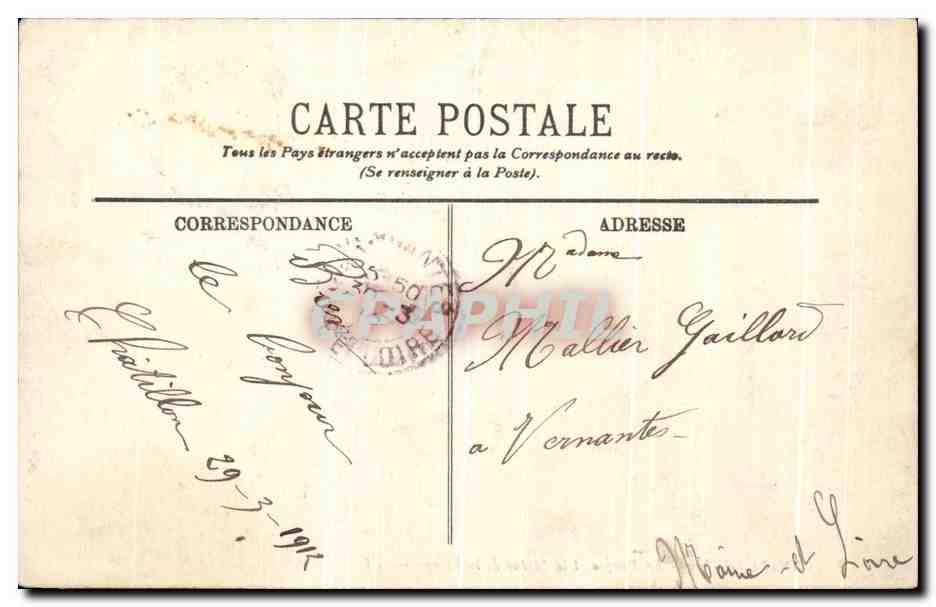 CARTE POSTALE
Tous les Pays étrangers n'acceptent pas la Correspondance au recto.
(Se renseigner à la Poste).
CORRESPONDANCE
le bonjour
Chatillon 29-3-1912
ADRESSE
Madame
Mallier Gaillard
a Vernantes
Maine-et Loire
5-50
LOIRE
CPAPHIL